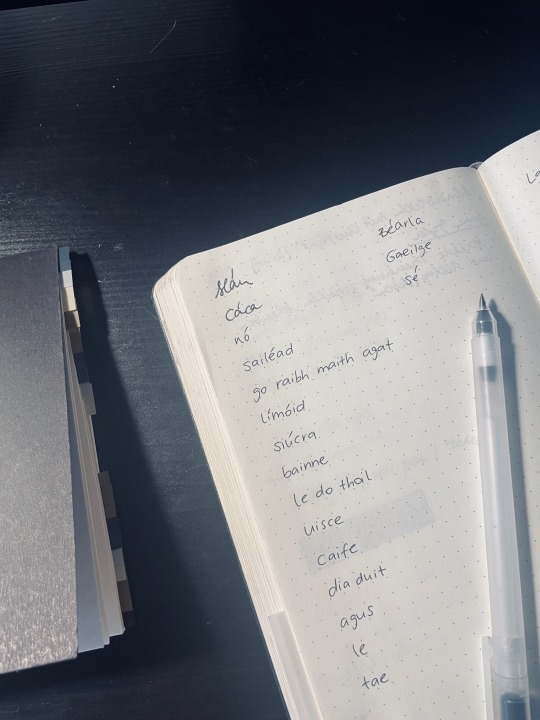 slán
cáca
nó
sailéad
go raibh maith agat
límóid
siúcra
bainne
le do thoil
uisce
caife
dia duit
agus
le
tae
Béarla
Gaeilge
sé